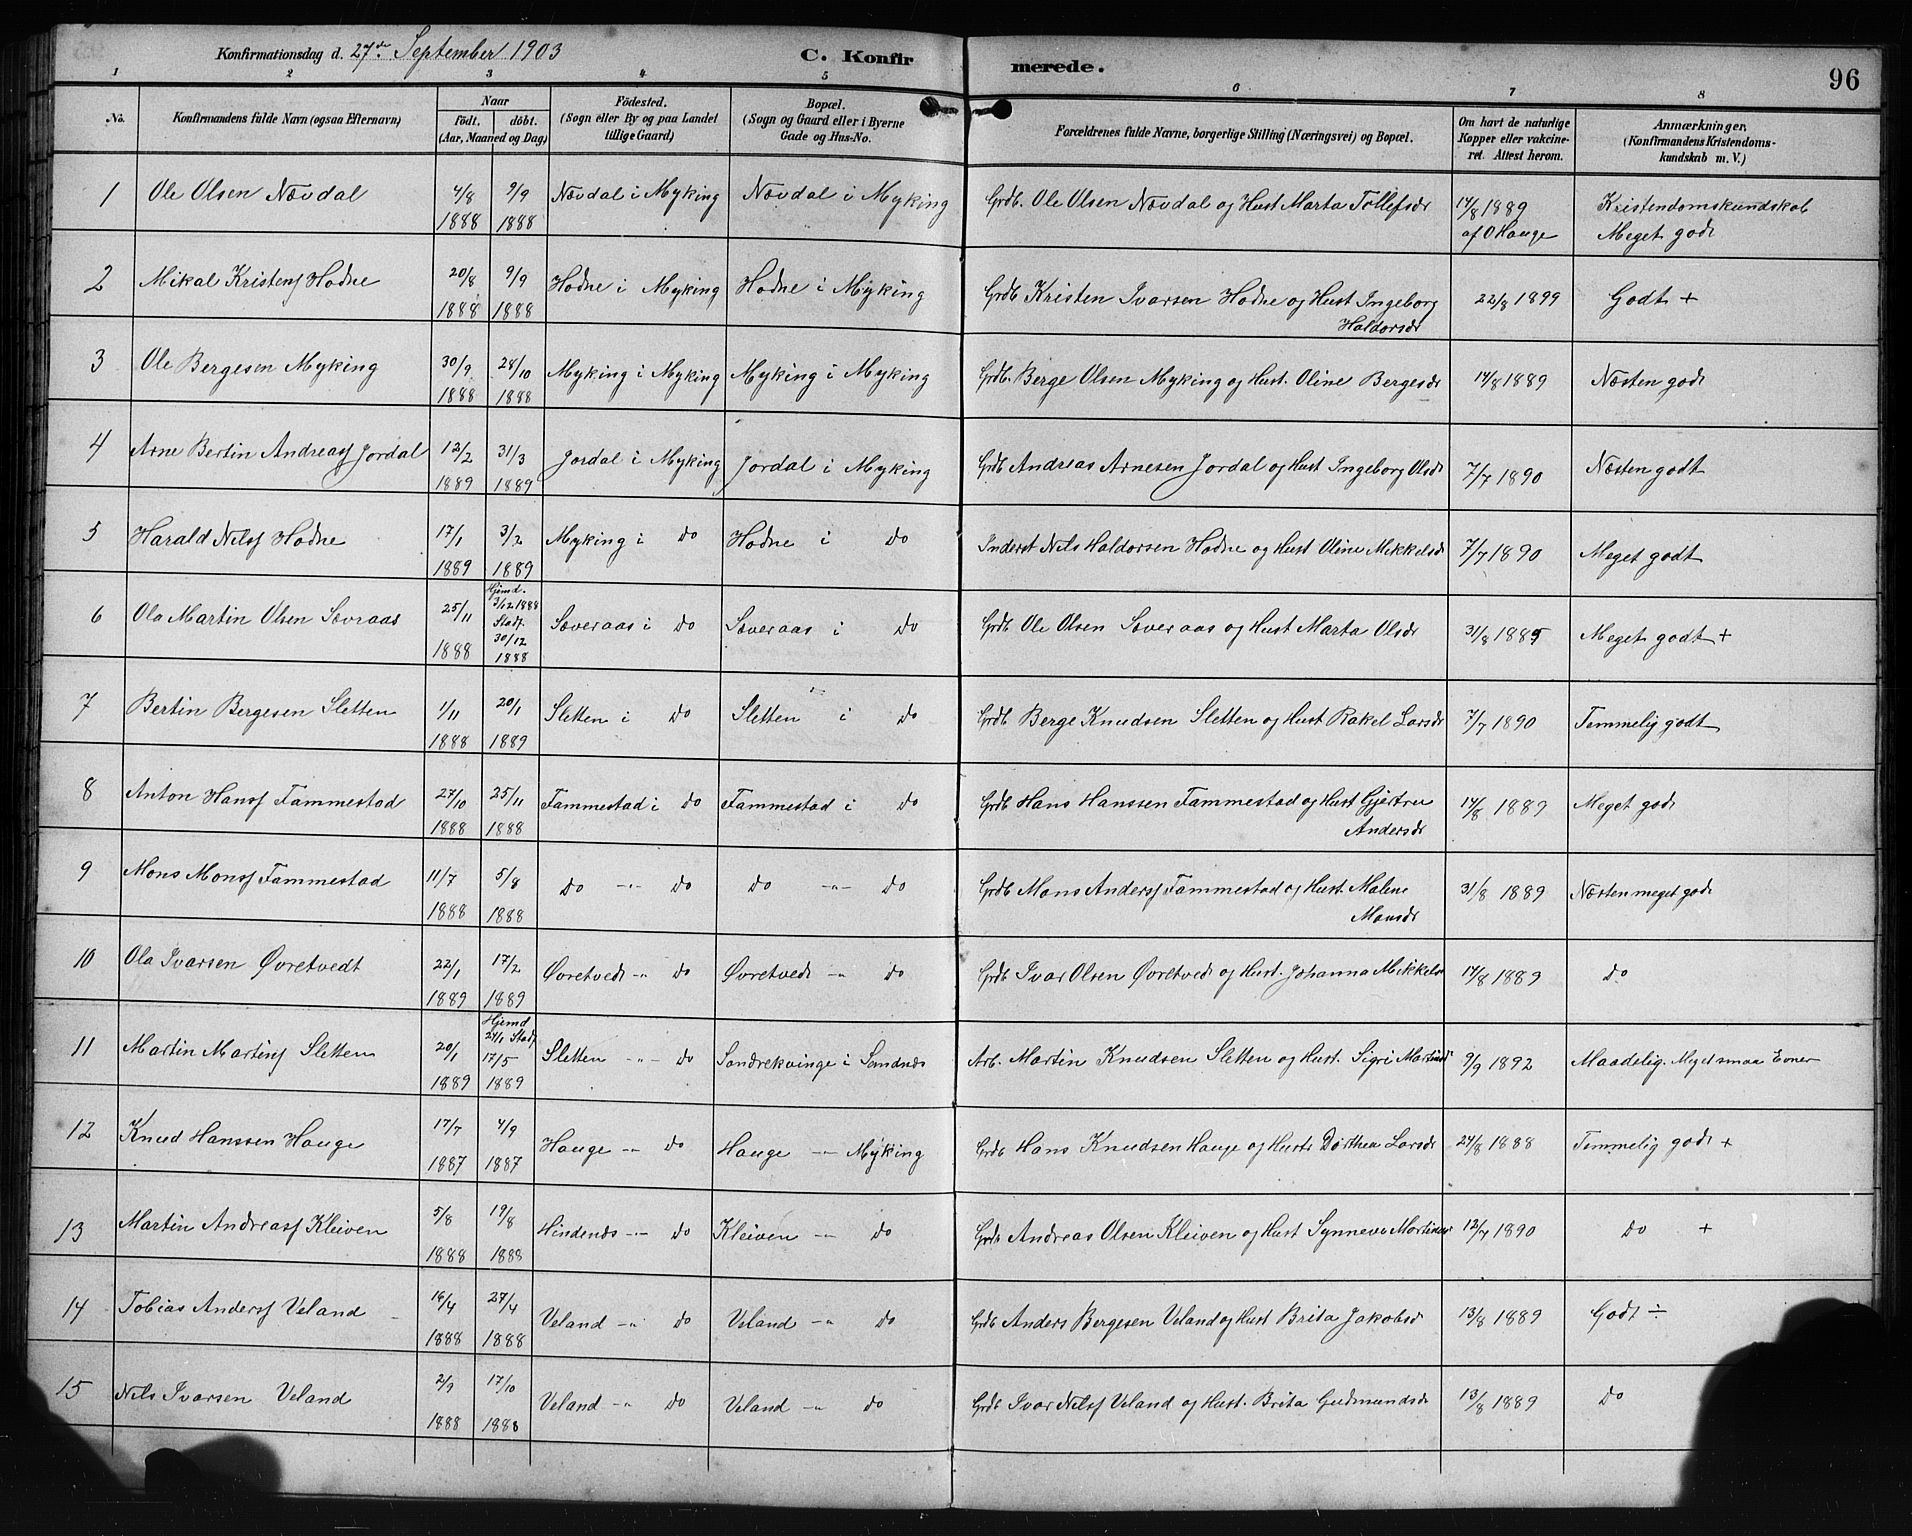 Konfirmationsdag d. 27de September 1903 C. Konfir merede. 96
1 2 3 4 5 6 7 8
No. Konfirmandens fulde Navn (ogsaa Efternavn) Naar Födt. döbt. (Aar, Maaned og Dag) Födested. (Sogn eller By og paa Landet tillige Gaard) Bopæl. (Sogn og Gaard eller i Byerne Gade og Hus-No. Forældrenes fulde Navne, borgerlige Stilling (Næringsvei) og Bopæl. Om havt de naturlige Kopper eller vakcineret. Attest herom. Anmærkninger. (Konfirmandens Kristendomskundskab m. V.)
1 Ole Olsen Nævdal 4/8 1888 9/9 1888 Nævdal i Myking Nævdal i Myking Grdb. Ole Olsen Nævdal og Hust Marta Tollefsdr 14/8 1889 af O Hauge Kristendomskundskab Meget godt
2 Mikal Kristens Hodne 20/8 1888 9/9 1888 Hodne i Myking Hodne i Myking Grdb Kristen Ivarsen Hodne og Hust Ingeborg Haldorsdr 22/8 1899 Godt +
3 Ole Bergesen Myking 30/9 1888 28/10 1888 Myking i Myking Myking i Myking Grdb. Berge Olsen Myking og Hust. Oline Bergesdr 14/8 1889 Næsten godt
4 Arne Bertin Andreass Jordal 12/2 1889 31/3 1889 Jordal i Myking Jordal i Myking Grdb Andreas Arnesen Jordal og Hust Ingeborg Olsdr 7/7 1890 Næsten godt
5 Harald Nilss Hodne 17/1 1889 3/2 1889 Myking i Do Hodne i Do Inderst Nils Haldorsen Hodne og Hust Oline Mikkelsdr 7/7 1890 Meget godt
6 Ola Martin Olsen Sævraas 25/11 1888 Hjemd. 3/12 1888 Stadf. 30/12 1888 Sæveraas i Do Sæveraas i Do Grdb Ole Olsen Sæveraas og Hust Marta Olsdr 31/8 1889 Meget godt +
7 Bertin Bergesen Sletten 1/11 1888 20/1 1889 Sletten i Do Sletten i Do Grdb Berge Knudsen Sletten og Hust Rakel Larsdr 7/7 1890 Temmelig godt
8 Anton Hanss Fammestad 27/10 1888 25/11 1888 Fammestad i Do Fammestad i Do Grdb Hans Hanssen Fammestad og Hust Gjertru Andersdr 14/8 1889 Meget godt
9 Mons Monss Fammestad 11/7 1888 5/8 1888 Do -"- Do Do -"- Do Grdb Mons Anderss Fammestad og Hust. Malene Monsdr 31/8 1889 Næsten meget godt
10 Ola Ivarsen Øvretvedt 22/1 1889 17/2 1889 Øvretvedt -"- Do Øvretvedt -"- Do Grdb Ivar Olsen Øvretvedt og Hust. Johanna Mikkelsdr 14/8 1889 Do
11 Martin Martins Sletten 20/1 1889 Hjemd 24/1 Stadf 17/5 1889 Sletten -"- Do Sandrekvinge i Sændnes Arb. Martin Knudsen Sletten og Hust. Sigri Martinsdr 9/9 1892 Maadelig. Meget smaa Evner
12 Knud Hanssen Hauge 17/7 1887 4/9 1887 Hauge -"- Do Hauge -"- Myking Grdb Hans Knudsen Hauge og Hust. Dorthea Larsdr 24/8 1888 Temmelig godt +
13 Martin Andreass Kleiven 5/8 1888 19/8 1888 Hindenes -"- Do Kleiven -"- Do Grdb Andreas Olsen Kleiven og Hust Synneve Martinsdr 12/7 1890 Do +
14 Tobias Anderss Veland 16/4 1888 27/4 1888 Veland -"- Do Veland -"- Do Grdb Anders Bergesen Veland og Hust Brita Jakobsdr 13/8 1889 Godt ÷
15 Nils Ivarsen Veland 2/9 1888 17/10 1888 Veland -"- Do Veland -"- Do Grdb Ivar Nilss Veland og Hust. Brita Gudmundsdr 13/8 1889 Do